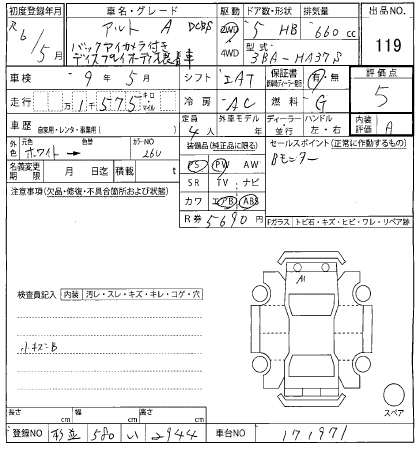 初度登録年月 車名・グレード 駆動 ドア数・形状 排気量 出品NO.
R6/5月 アルト A DCBS 2WD 5 HB 660 cc 119
バックアイカメラ付き 4WD 型式
ディスプレイオーディオ装着車 3BA-HA37S
車検 9年 5月 シフト IAT 保証書 有・無 評価点
走行 万 1千 575 キロ マイル 冷房 AC 燃料 G 5
車歴 自家用・レンタ・事業用( ) 定員 4人 外車モデル 年 ディーラー 並行 ハンドル 左・右 内装評価 A
外色 元色 ホワイト→ 色替 カラーNO 26U 装備品(純正品に限る) セールスポイント(正常に作動するもの)
名義変更期限 月 日迄 積載 t PS PW AW Bモニター
注意事項(欠品・修復・不具合箇所および状態) SR TV ナビ
カワ エアB ABS
R券 5690円 Fガラス トビ石・キズ・ヒビ・ワレ・リペア跡
A1
検査員記入 内装 汚レ・スレ・キズ・キレ・コゲ・穴
小キズ-B
スペア
長さ cm 幅 cm 高さ cm
登録NO 杉並 580 い 2944 車台NO 171971